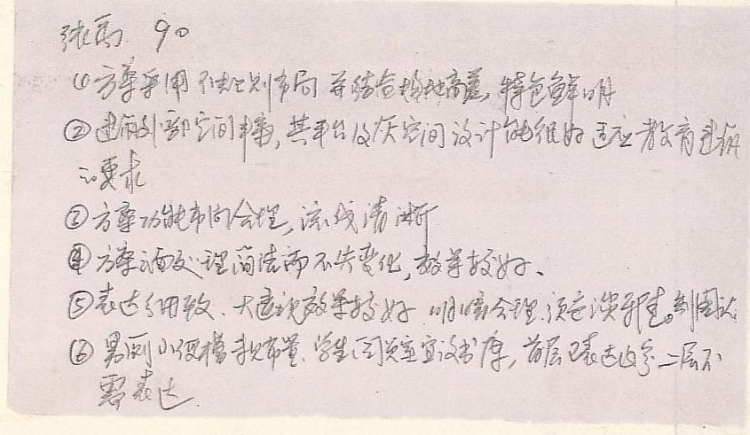 张禹 90
① 方案采用不规则布局并结合场地高差,特色鲜明
② 建筑外部空间丰富,其平台及灰空间设计能很好适应教育建筑
的要求
③ 方案功能布局合理,流线清晰
④ 方案立面处理简洁而不失变化,效果较好、
⑤ 表达细致、大透视效果较好 明暗合理
⑥ 男厕小便槽布置、学生阅览室宜设书库,首层已表达 二层不
需表达.